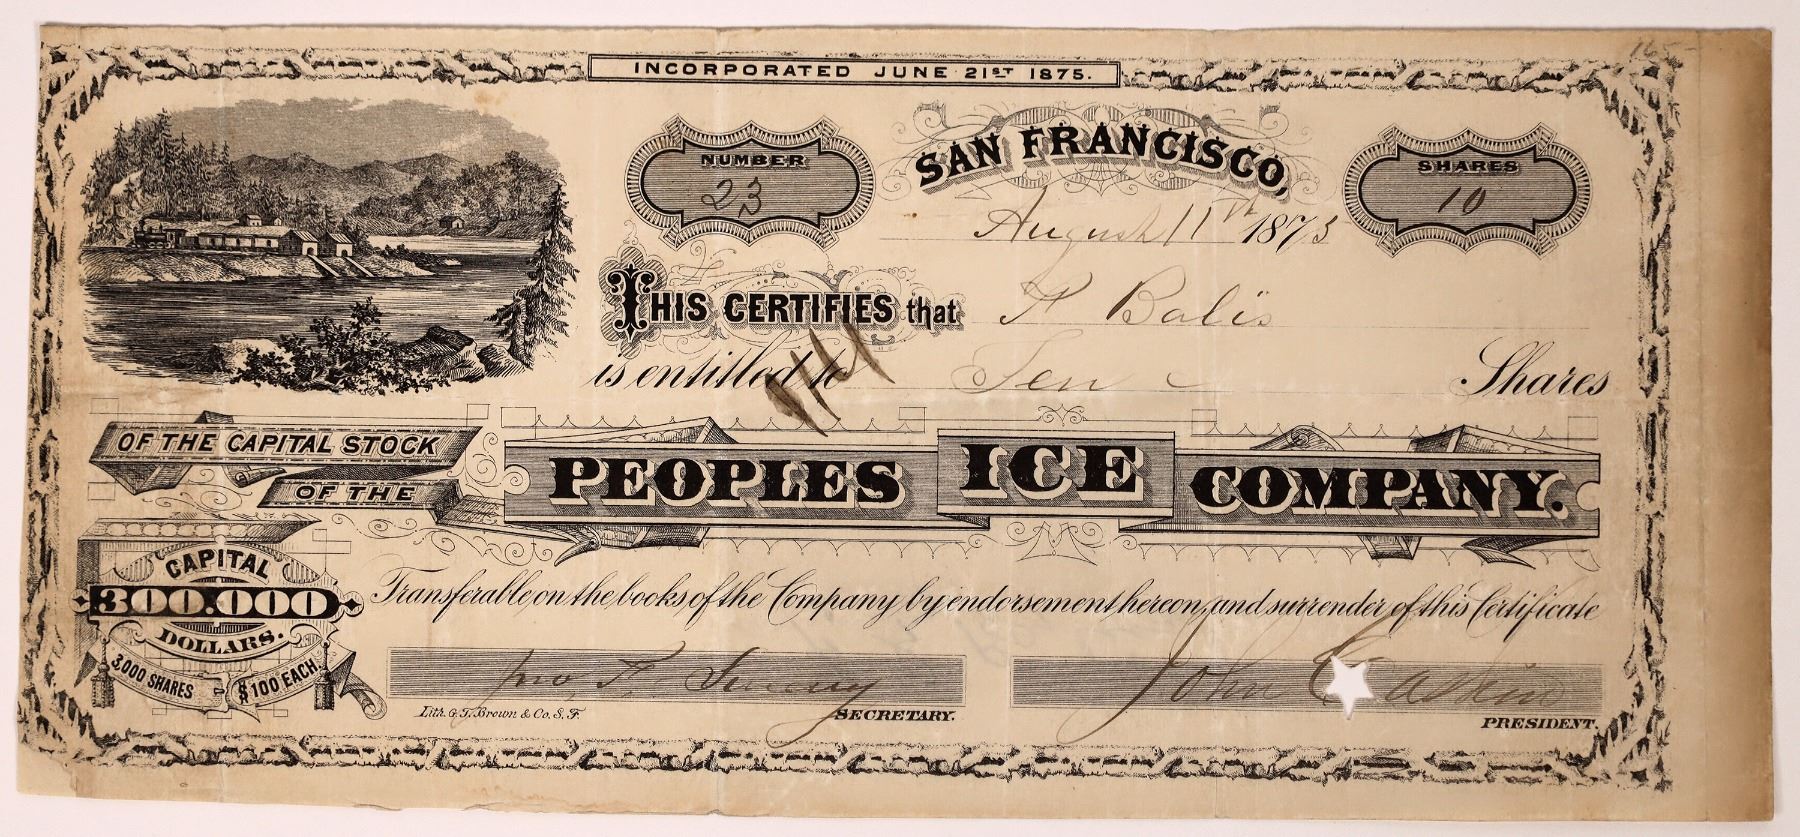 165-
INCORPORATED JUNE 21ST 1875.
NUMBER
23
SAN FRANCISCO,
August 11th 1875
SHARES
10
THIS CERTIFIES that
Balis
is entitled to Ten Shares
OF THE CAPITAL STOCK
OF THE
PEOPLES ICE COMPANY.
CAPITAL
300.000
DOLLARS.
3,000 SHARES $100 EACH.
Transferable on the books of the Company by endorsement hereon, and surrender of this Certificate
Jno F.
SECRETARY.
John
PRESIDENT.
Lith. G.T. Brown & Co. S.F.